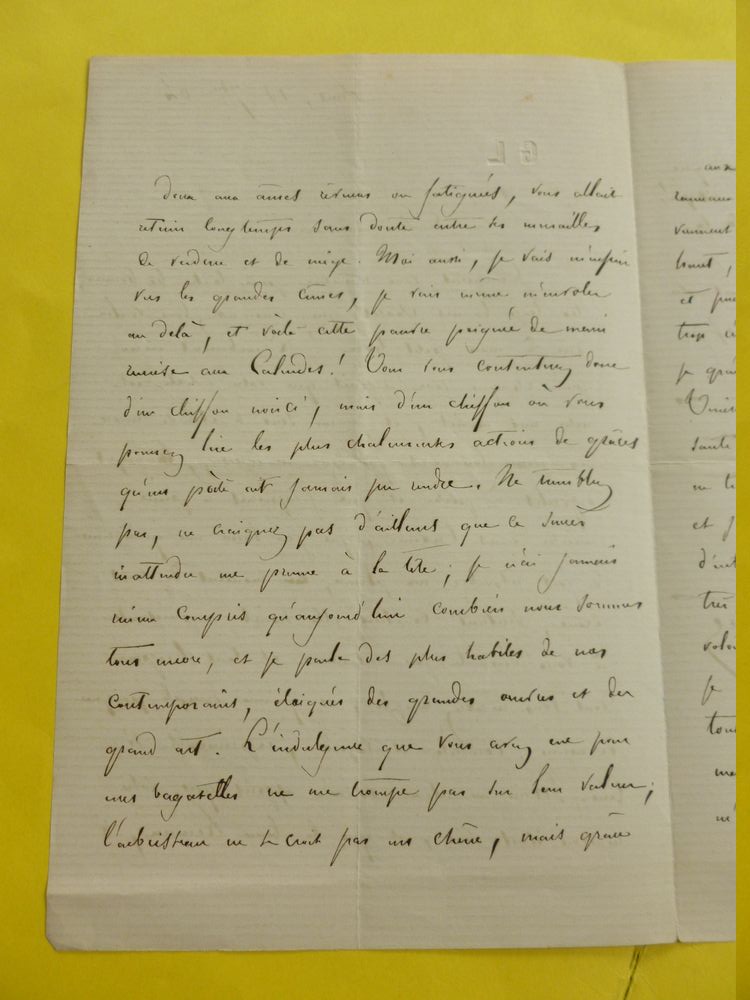 doux aux âmes rêveuses ou fatiguées, vous allait
retenir longtemps sans doute entre ses murailles
de verdure et de neige. Moi aussi, je vais m'enfuir
vers les grandes cimes, je vais même m'envoler
au delà, et voilà cette pauvre poignée de main
remise aux Calendes! Vous vous contenterez donc
d'un chiffon noirci, mais d'un chiffon où vous
pourrez lire les plus chaleureuses actions de grâces
qu'un poète ait jamais pu rendre. Ne tremblez
pas, ne craignez pas d'ailleurs que ce succès
inattendu me prenne à la tête; je n'ai jamais
mieux compris qu'aujourd'hui combien nous sommes
tous encore, et je parle des plus habiles de nos
contemporains, éloignés des grandes œuvres et du
grand art. L'indulgence que vous avez eue pour
mes bagatelles ne me trompe pas sur leur valeur;
l'arbrisseau ne se croit pas un chêne, mais grâce
aux
rameaux
viennent
haut,
et
trop
je
et
très
je
G L